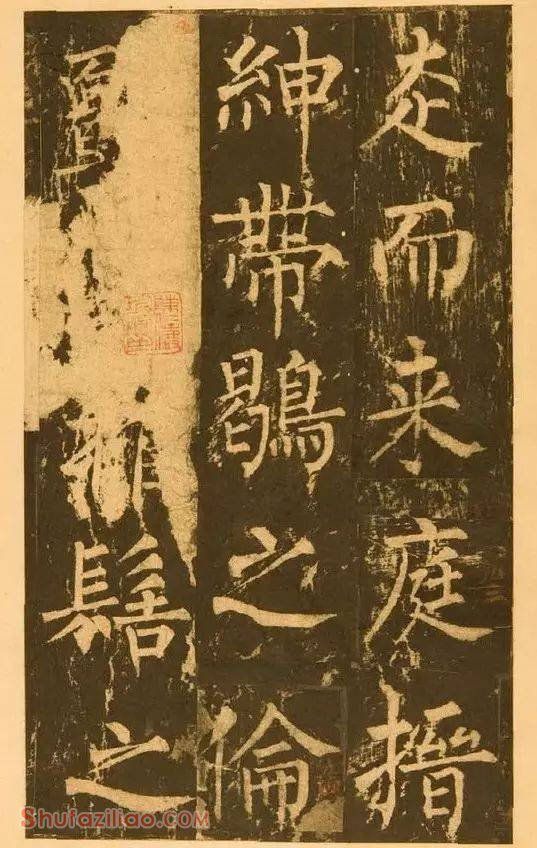 走而来庭搢
紳帶鶡之倫
椎髻之
Shufaziliao.com